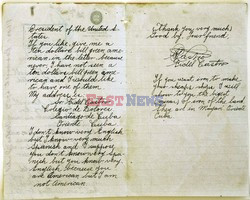 President of the United S-
tates
If you like, give me a
ten dollars bill green ame-
rican, in the letter, because
never, I have not seen a
ten dollars bill green ame-
rican and I would like
to have one of them
My address is:
Fidel Castro
Colegio de Dolores
Santiago de Cuba
Oriente Cuba
I don't know very English
but I know very much
Spanish and I suppose
you don't know very Spa-
nish but you know very
English because you
are American but I am
not American
Thank you very much
Good by. Your friend,
Castro
Fidel Castro
If you want iron to make
your ships I will
show to you the
of iron of the land
They are in Mayari Oriente
Cuba
EAST NEWS